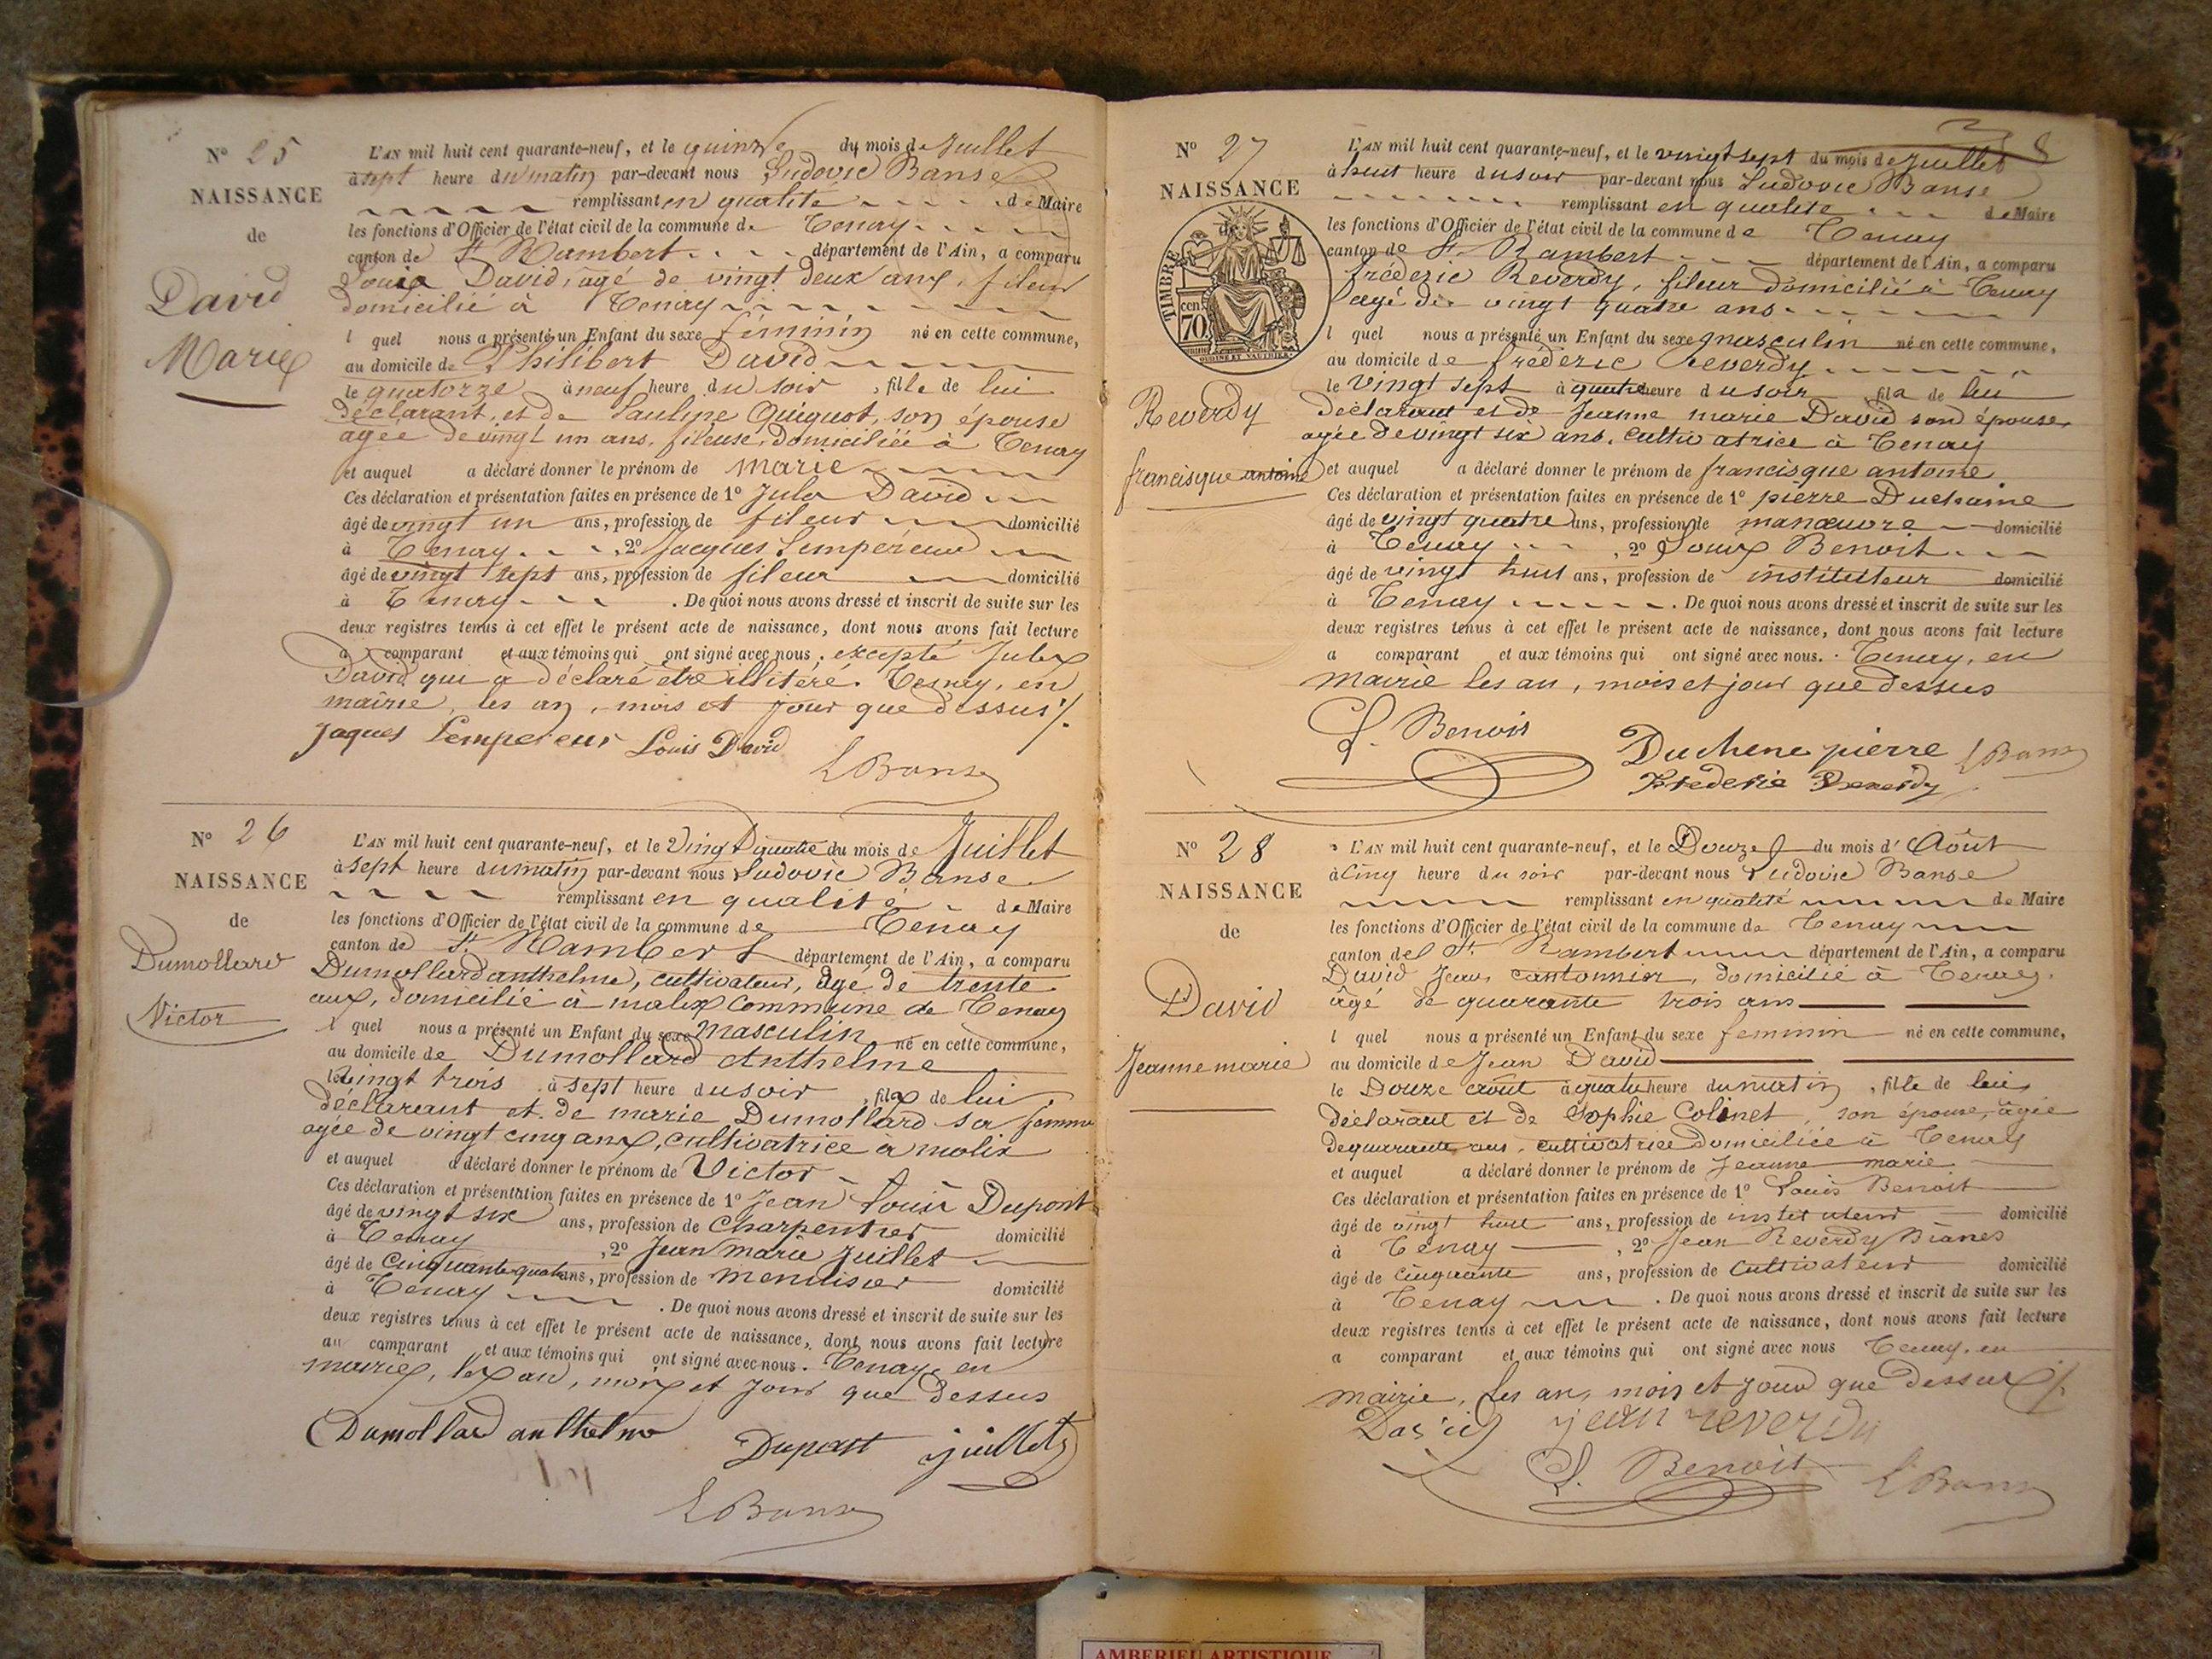 N° 25
NAISSANCE
de
David
Marie
L'AN mil huit cent quarante-neuf, et le quinze du mois de Juillet
à sept heure du matin par-devant nous Ludovic Banse
remplissant en qualité de Maire
les fonctions d'Officier de l'état civil de la commune de Tenay
canton de St Rambert département de l'Ain, a comparu
Louis David, agé de vingt deux ans, fileur
domicilié à Tenay
l quel nous a présenté un Enfant du sexe féminin né en cette commune,
au domicile de Philibert David
le quatorze à neuf heure du soir, fille de lui
déclarant, et de Pauline Quiquot, son épouse
agée de vingt un ans, fileuse, domiciliée à Tenay
et auquel a déclaré donner le prénom de marie
Ces déclaration et présentation faites en présence de 1° Jules David
âgé de vingt un ans, profession de fileur domicilié
à Tenay, 2° Jacques Lempéreur
âgé de vingt sept ans, profession de fileur domicilié
à Tenay. De quoi nous avons dressé et inscrit de suite sur les
deux registres tenus à cet effet le présent acte de naissance, dont nous avons fait lecture
a comparant et aux témoins qui ont signé avec nous, excepté Jules
David qui a déclaré etre illitéré. Tenay, en
mairie, les an, mois et jour que dessus ./.
Jaques Lempereur Louis David
L Banse
N° 26
NAISSANCE
de
Dumollard
Victor
L'AN mil huit cent quarante-neuf, et le Vingt quatre du mois de Juillet
à sept heure du matin par-devant nous Ludovic Banse
remplissant en qualité de Maire
les fonctions d'Officier de l'état civil de la commune de Tenay
canton de St Rambert département de l'Ain, a comparu
Dumollard anthelme, cultivateur, âgé de trente
ans, domicilié à malix commune de Tenay
l quel nous a présenté un Enfant du sexe masculin né en cette commune,
au domicile de Dumollard Anthelme
le vingt trois à sept heure du soir, fils de lui
déclarant et de marie Dumollard sa femme
agée de vingt cinq ans, cultivatrice à malix
et auquel a déclaré donner le prénom de Victor
Ces déclaration et présentation faites en présence de 1° Jean Louis Dupont
âgé de vingt six ans, profession de Charpentier domicilié
à Tenay, 2° Jean marie Juillet
âgé de Cinquante quatre ans, profession de menuisier domicilié
à Tenay. De quoi nous avons dressé et inscrit de suite sur les
deux registres tenus à cet effet le présent acte de naissance, dont nous avons fait lecture
au comparant et aux témoins qui ont signé avec nous. Tenay, en
mairie, les an, mois et jour que dessus
Dumollard anthelme Dupont juillet
L Banse
8
N° 27
NAISSANCE
de
TIMBRE
cen. 70
Reverdy
francisque antoine
L'AN mil huit cent quarante-neuf, et le vingt sept du mois de Juillet
à huit heure du soir par-devant nous Ludovic Banse
remplissant en qualité de Maire
les fonctions d'Officier de l'état civil de la commune de Tenay
canton de St Rambert département de l'Ain, a comparu
fréderic Reverdy, fileur domicilié à Tenay
agé de vingt quatre ans
l quel nous a présenté un Enfant du sexe masculin né en cette commune,
au domicile de frederic reverdy
le vingt sept à quatre heure du soir fils de lui
déclarant et de Jeanne marie David son épouse
agée de vingt six ans, cultivatrice à Tenay
et auquel a déclaré donner le prénom de francisque antoine
Ces déclaration et présentation faites en présence de 1° pierre Duchaine
âgé de vingt quatre ans, profession de manœuvre domicilié
à Tenay, 2° Louis Benoit
âgé de vingt huit ans, profession de instituteur domicilié
à Tenay. De quoi nous avons dressé et inscrit de suite sur les
deux registres tenus à cet effet le présent acte de naissance, dont nous avons fait lecture
a comparant et aux témoins qui ont signé avec nous. Tenay, en
mairie les an, mois et jour que dessus
L. Benoit
Duchene pierre L Banse
Frederic Reverdy
N° 28
NAISSANCE
de
David
Jeanne marie
L'AN mil huit cent quarante-neuf, et le Douze du mois d'Août
à cinq heure du soir par-devant nous Ludovic Banse
remplissant en qualité de Maire
les fonctions d'Officier de l'état civil de la commune de Tenay
canton de St Rambert département de l'Ain, a comparu
David Jean, cantonnier, domicilié à Tenay,
âgé de quarante trois ans
l quel nous a présenté un Enfant du sexe feminin né en cette commune,
au domicile de Jean David
le Douze août à quatre heure du matin, fille de lui
déclarant et de Sophie Colinet, son épouse, âgée
de quarante ans, cultivatrice domiciliée à Tenay
et auquel a déclaré donner le prénom de Jeanne marie
Ces déclaration et présentation faites en présence de 1° Louis Benoit
âgé de vingt huit ans, profession de instituteur domicilié
à Tenay, 2° Jean Reverdy
âgé de cinquante ans, profession de Cultivateur domicilié
à Tenay. De quoi nous avons dressé et inscrit de suite sur les
deux registres tenus à cet effet le présent acte de naissance, dont nous avons fait lecture
a comparant et aux témoins qui ont signé avec nous Tenay, en
mairie, les an, mois et jour que dessus ./.
David jean reverdy
L. Benoit L Banse
AMBERIEU ARTISTIQUE